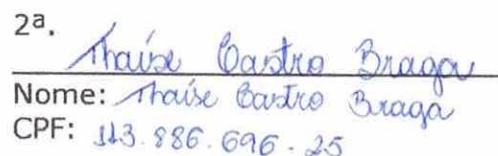 2ª.
Thaise Castro Braga
Nome: Thaise Castro Braga
CPF: 113.886.696-25